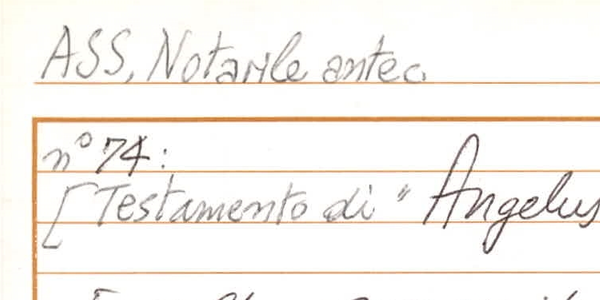 ASS, Notarile antec.
n° 74:
[Testamento di "Angelus